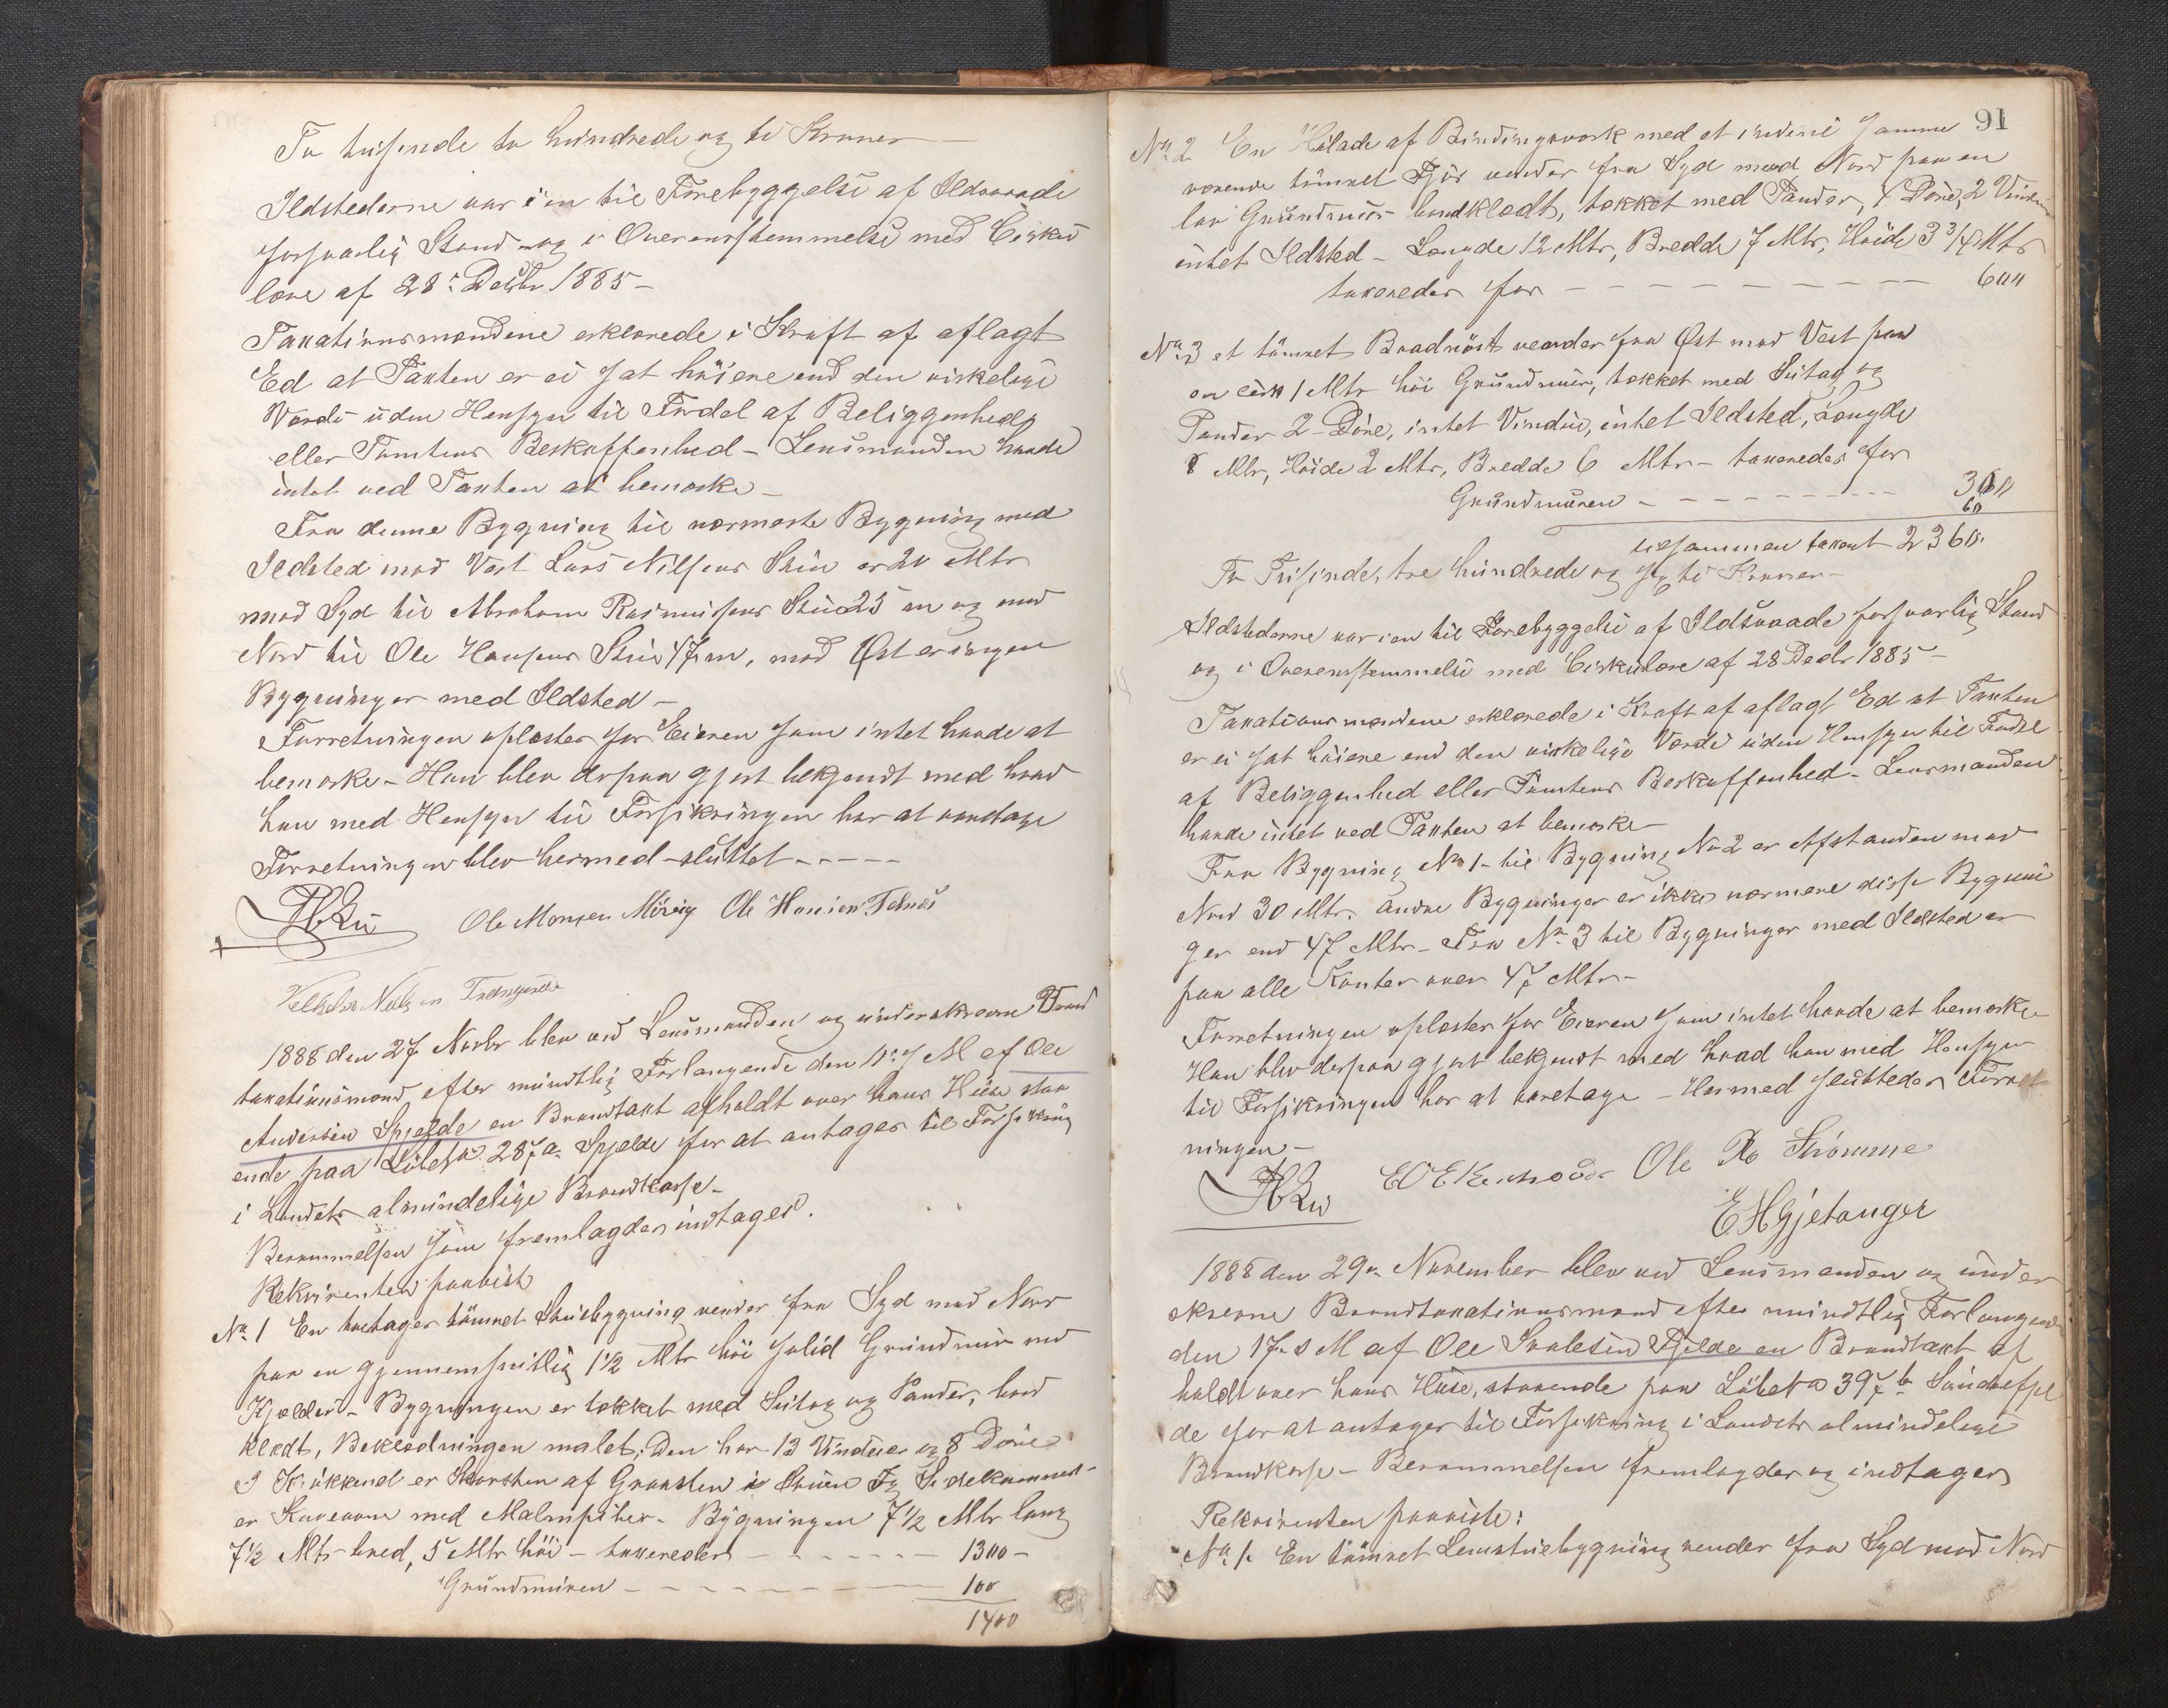 To tusende to hundrede og ti Kroner
Ildstederne var i en til Forebyggelse af Ildsvaade
forsvarlig Stand og i Overensstemmelse med Cirku
lære af 28: Decbr 1885 –
Taxationsmændene erklærede i Kraft af aflagt
Ed at Taxten er ei sat høiere end den virkelige
Værdi uden Hensyn til Fordel af Beliggenhed
eller Tomtens Beskaffenhed – Lensmanden havde
intet ved Taxten at bemærke –
Fra denne Bygning til nærmeste Bygning med
Ildsted mod Vest Lars Nilsens Stue er 20 Mtr
mod Syd til Abraham Rasmussens Stue 25 m og mod
Nord til Ole Hansens Stue 47 m, mod Øst er ingen
Bygninger med Ildsted –
Forretningen oplæstes for Eieren som intet havde at
bemærke – Han blev derpaa gjort bekjendt med hvad
han med Hensyn til Forsikringen har at varetage
Forretningen blev hermed sluttet
Ole Monsen Ole Hansen
1888 den 27 Novbr blev ved Lensmanden og underskrevne Brand
taxationsmænd efter mundtlig Forlangende den 11 s M af Ole
Andersen Spjelde en Brandtaxt afholdt over hans Huse staa
ende paa Løbe No 287 a Spjelde for at antages til Forsikring
i Landets almindelige Brandkasse –
Berammelsen som fremlagdes indtages.
Rekvirenten paaviste
No 1 En toetages tømret Stuebygning vender fra Syd mod Nord
paa en gjennemsnitlig 1½ Mtr høi solid Grundmur med
Kjælder – Bygningen er tækket med Sutag og Pander, bord
klædt, Beklædningen malet. Den har 13 Vinduer og 8 Døre
I Kjøkkenet er Skorsten af Graasten i Stuen og Sidekammeret
er Kakovn med Malmpiber – Bygningen 7½ Mtr lang
7½ Mtr bred, 5 Mtr høi – taxeredes – 1300 –
Grundmuren – 100
1400
91
No 2 En Hølade af Bindingsværk med et indeni samme
værende tømret Fjøs vender fra Syd mod Nord paa en
lav Grundmur bordklædt, tækket med Pander, 4 Døre, 2 Vinduer
intet Ildsted – Længde 12 Mtr, Bredde 7 Mtr, Høide 3 3/4 Mtr
taxeredes for – 600
No 3 et tømret Baadnøst vender fra Øst mod Vest paa
en cirk 1 Mtr høi Grundmur, tækket med Sutag og
Pander 2 Døre, intet Vindue, intet Ildsted, Længde
8 Mtr, Høide 2 Mtr, Bredde 6 Mtr – taxeredes for
300
Grundmuren – 60
tilsammen taxert 2360.
To Tusinde, tre hundrede og sexti Kroner –
Ildstederne var i en til Forebyggelse af Ildsvaade forsvarlig Stand
og i Overensstemmelse med Cirkulære af 28 Decbr 1885 –
Taxationsmændene erklærede i Kraft af aflagt Ed at Taxten
er ei sat høiere end den virkelige Værdi uden Hensyn til Fordel
af Beliggenhed eller Tomtens Beskaffenhed – Lensmanden
havde intet ved Taxten at bemærke –
Fra Bygning No 1 til Bygning No 2 er Afstanden mod
Nord 30 Mtr. andre Bygninger er ikke nærmere disse Bygnin
ger end 47 Mtr – Fra No 3 til Bygninger med Ildsted er
paa alle Kanter over 47 Mtr –
Forretningen oplæstes for Eieren som intet havde at bemærke
Han blev derpaa gjort bekjendt med hvad han med Hensyn
til Forsikringen har at varetage – Hermed sluttedes Forret
ningen –
Ole Strømme
E H Gjetanger
1888 den 29 November blev ved Lensmanden og under
skrevne Brandtaxationsmænd efter mundtlig Forlangende
den 17 s M af Ole Spjelde en Brandtaxt af
holdt over hans Huse, staaende paa Løbe No 397 b
de for at antages til Forsikring i Landets almindelige
Brandkasse – Berammelsen fremlagdes og indtages
Rekvirenten paaviste:
No 1. En tømret Lemstuebygning vender fra Syd mod Nord